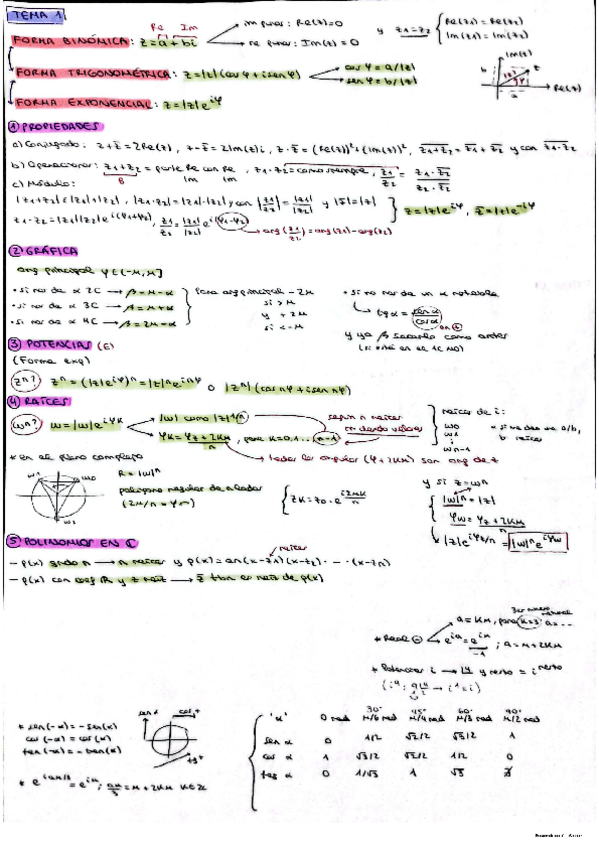 TEMA 1
Re Im
FORMA BINÓMICA: z = a + bi
im puros: Re(z)=0
re puros: Im(z)=0
y z1=z2 { Re(z1)=Re(z2)
Im(z1)=Im(z2)
FORMA TRIGONOMÉTRICA: z=|z|(cos φ + i sen φ)
cos φ = a/|z|
sen φ = b/|z|
Im(z)
Re(z)
FORMA EXPONENCIAL: z=|z|e^{iφ}
① PROPIEDADES
a) Conjugado: z+z̄ = 2Re(z), z-z̄ = 2Im(z)i, z·z̄ = (Re(z))²+(Im(z))², \overline{z1+z2} = z̄1+z̄2 y con \overline{z1·z2}
b) Operaciones: z1+z2 = parte Re con Re, z1·z2 = como siempre, z1/z2 = z1·z̄2/z2·z̄2
Im Im
c) Módulo:
|z1+z2| ≤ |z1|+|z2|, |z1·z2| = |z1|·|z2| y con |z1/z2| = |z1|/|z2| y |z̄|=|z| } z=|z|e^{iφ}, z̄=|z|e^{-iφ}
z1·z2 = |z1||z2|e^{i(φ1+φ2)}, z1/z2 = |z1|/|z2| e^{i(φ1-φ2)}
arg(z1/z2) = arg(z1)-arg(z2)
② GRÁFICA
ang principal φ∈(-π,π]
• si nos da α 2C → β = π-α
• si nos da α 3C → β = π+α
• si nos da α 4C → β = 2π-α
para ang principal -2π
si > π
y +2π
si < -π
• si no nos da un α notable
tg α = sen α/cos α
en ⊕
y ya β sacarlo como antes
(si está en el 1C NO)
③ POTENCIAS (E)
(Forma exp)
zⁿ? zⁿ = (|z|e^{iφ})ⁿ = |z|ⁿe^{inφ} o |zⁿ|(cos nφ + i sen nφ)
④ RAÍCES
wn? w=|w|e^{iφK}
|w| como |z|^{1/n}
φK = φz+2Kπ/n, para K=0,1...n-1
según n raíces
me darán valores
todos los angular (φ+2Kπ) son ang de z
raíces de i:
w0
w1
wn-1
* en el plano complejo
w1
w0
w2
R = |w|
polígono regular de n lados
(2π/n = φ)
{ zK = z0·e^{i2πK/n}
y si z=wⁿ
|w|ⁿ = |z|
φw = φz+2Kπ/n
|z|e^{iφz/n} = |w|ⁿe^{iφw}
⑤ POLINOMIOS EN ℂ
raíces
— p(x) grado n → n raíces y p(x) = an(x-z1)(x-z2)· ··· ·(x-zn)
— p(x) con coef ℝ y z raíz → z̄ tbn es raíz de p(x)
a = Kπ, para K=3 a=...
* Real ⊖ e^{ia} = e^{iπ}; a=π+2Kπ
-1
* Potencias i → y resto = i^{resto}
* sen(-α) = -sen(α)
cos(-α) = cos(α)
tan(-α) = -tan(α)
sen +
cos +
tg +
* e^{i aπ/3} = e^{iπ}; aπ/3 = π+2Kπ K∈ℤ
30° 45° 60° 90°
'α' 0 rad π/6 rad π/4 rad π/3 rad π/2 rad
sen α 0 1/2 √2/2 √3/2 1
cos α 1 √3/2 √2/2 1/2 0
tag α 0 1/√3 1 √3 ∄